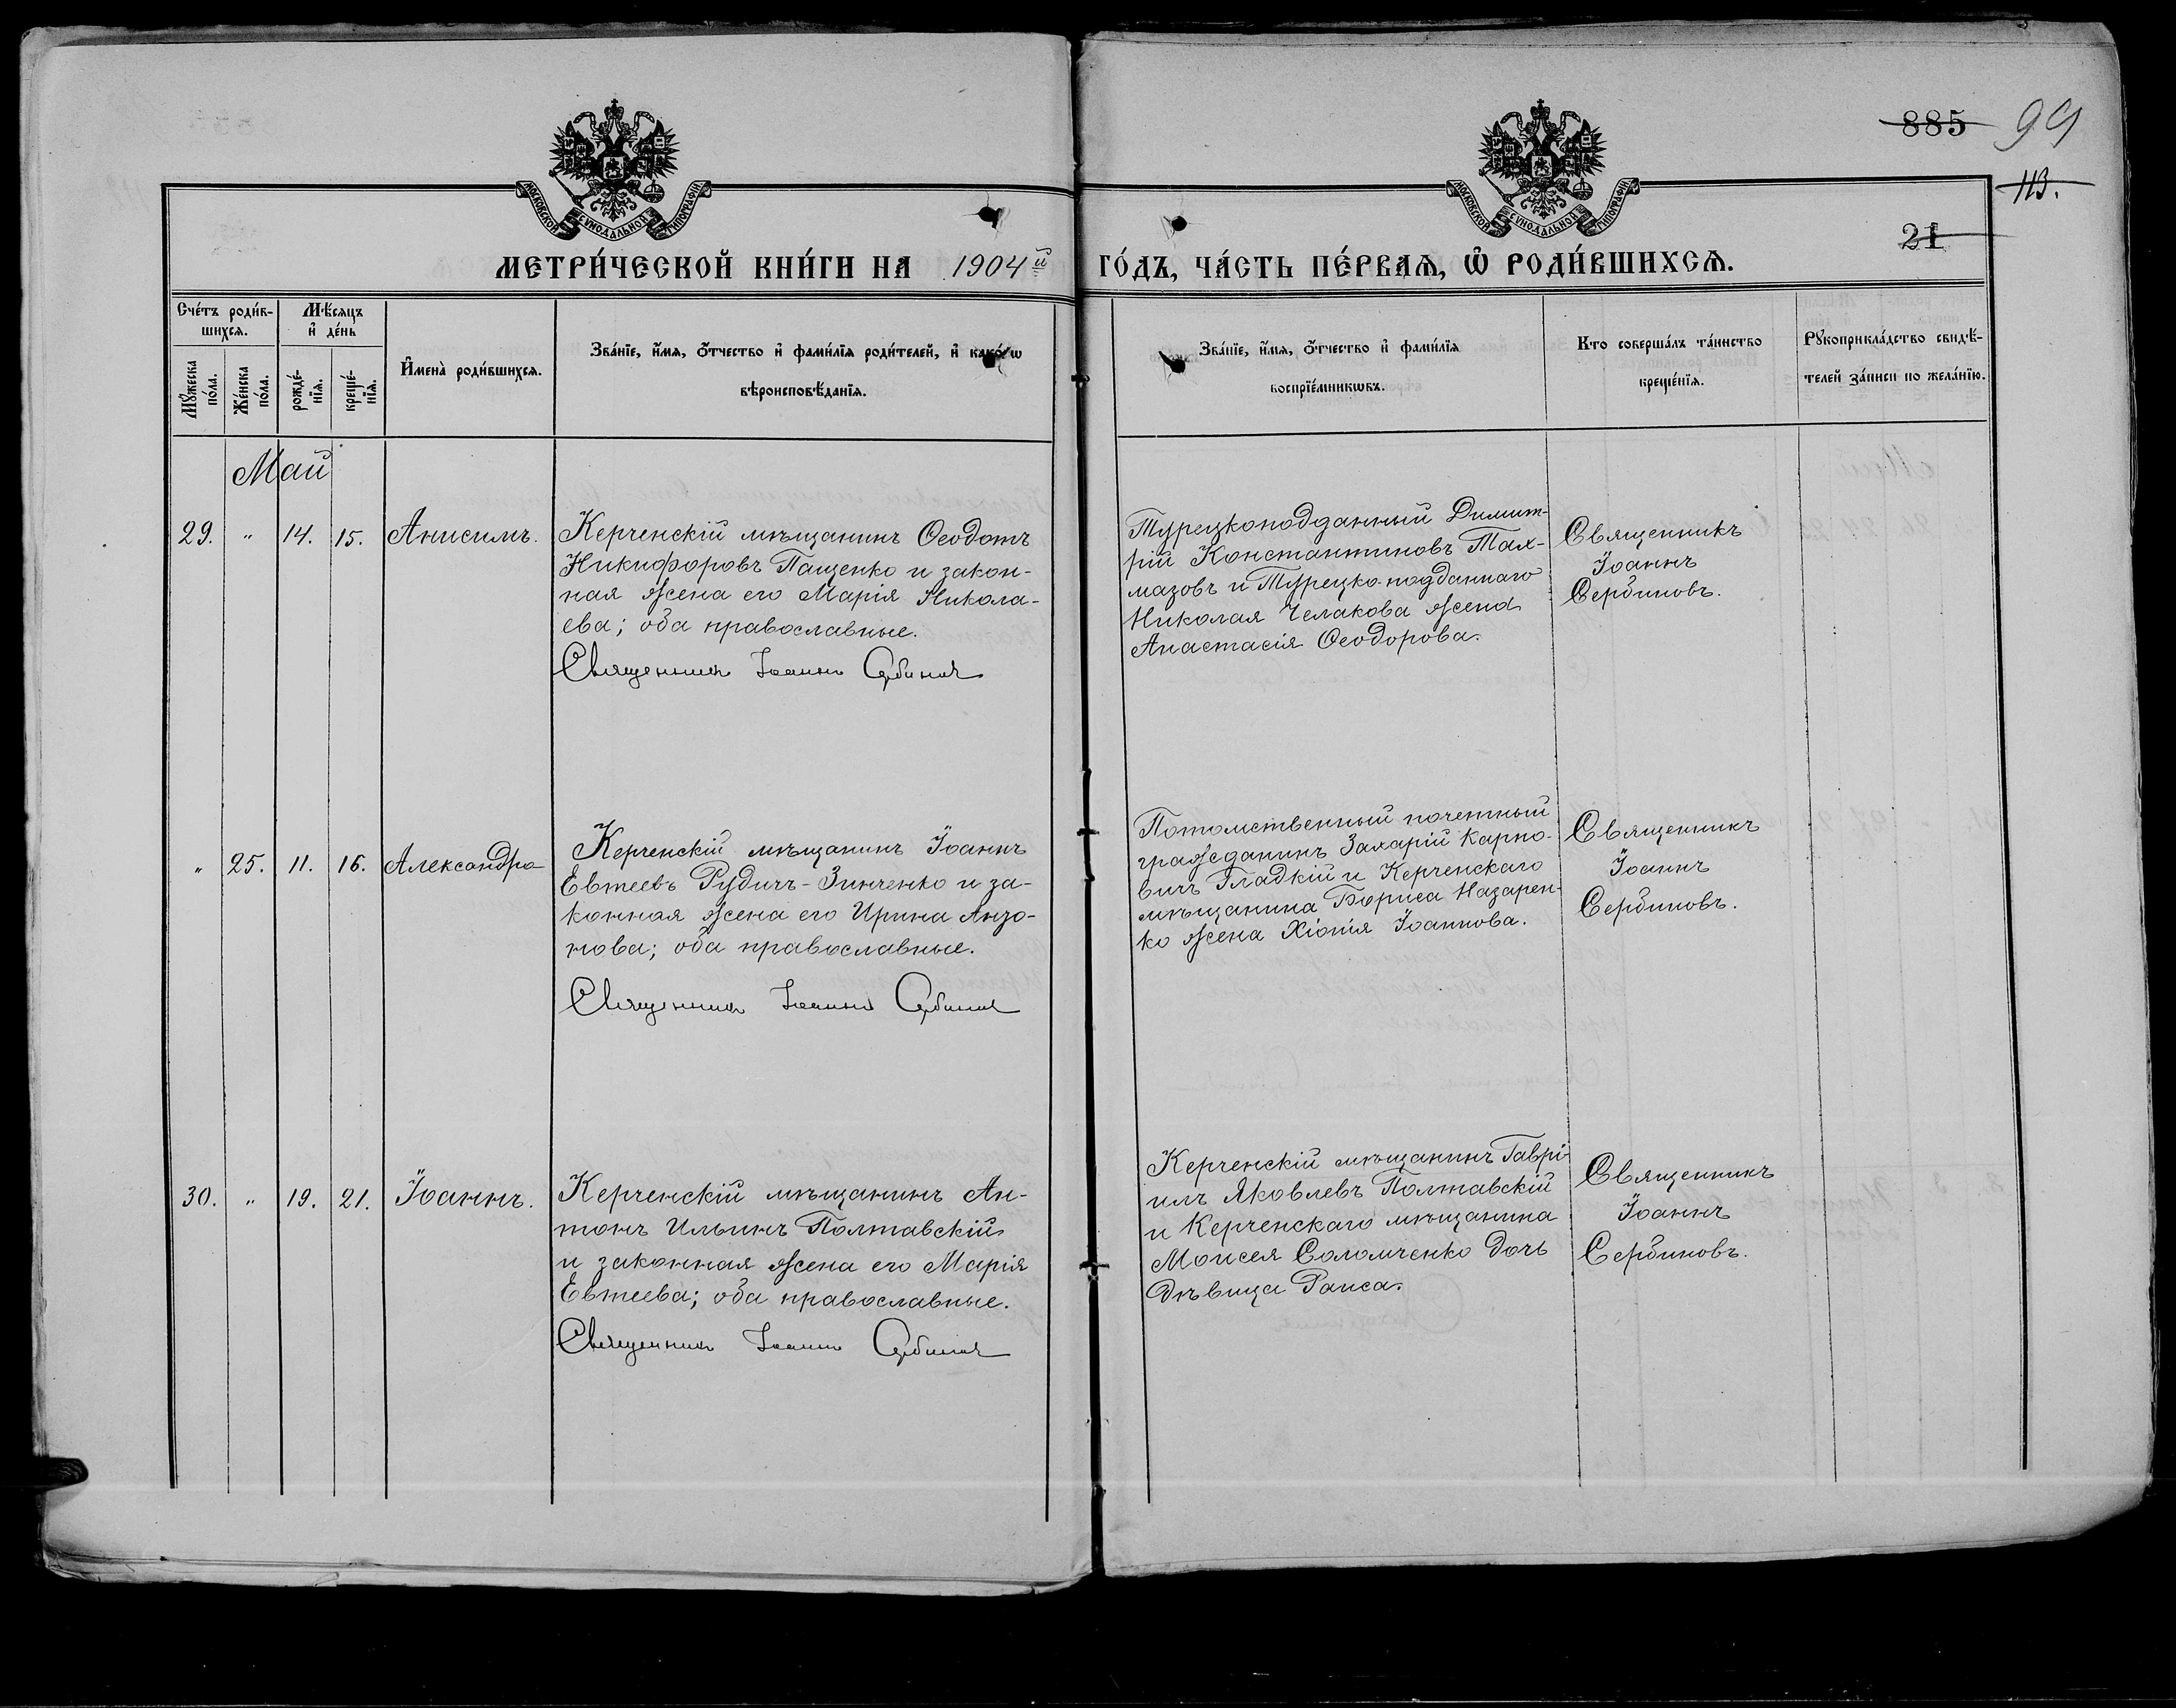 885 99
113.
21
МОСКОВСКОЙ СѴНОДАЛЬНОЙ ТИПОГРАФІИ
МОСКОВСКОЙ СѴНОДАЛЬНОЙ ТИПОГРАФІИ
МЕТРИ́ЧЕСКОЙ КНИ́ГИ НА 1904й ГО́ДЪ, ЧА́СТЬ ПЕ́РВАѦ, Ѡ҆ РОДИ́ВШИХСѦ.
Сче́тъ роди́в-
шихсѧ.
Мꙋ́жеска
по́ла.
Же́нска
по́ла.
Мѣ́сяцъ
и҆ де́нь
рожде́-
нїѧ.
креще́-
нїѧ.
И҆мена̀ роди́вшихсѧ.
Зва́нїе, и҆́мѧ, ѻ҆́тчество и҆ фами́лїѧ роди́телей, и҆ како́гѡ
вѣроисповѣ́данїѧ.
Зва́нїе, и҆́мѧ, ѻ҆́тчество и҆ фами́лїѧ
воспрїе́мникѡвъ.
Кто соверша́лъ та́инство
креще́нїѧ.
Рꙋкоприкла́дство свидѣ́-
телей за́писи по жела́нїю.
Май
29. " 14. 15. Анисимъ.
Керченскій мѣщанинъ Ѳеодотъ
Никифоровъ Пащенко и закон-
ная жена его Марія Никола-
ева; оба православные.
Священникъ Іоаннъ Сербиновъ
Турецкоподданный Димит-
рій Константиновъ Тах-
мазовъ и Турецко-подданнаго
Николая Челакова жена
Анастасія Ѳеодорова.
Священникъ
Іоаннъ
Сербиновъ.
" 25. 11. 16. Александра
Керченскій мѣщанинъ Іоаннъ
Евтеевъ Рудичъ-Зинченко и за-
конная жена его Ирина Анзо-
нова; оба православные.
Священникъ Іоаннъ Сербиновъ
Потомственный почетный
гражданинъ Захарій Карпо-
вичъ Гладкій и Керченскаго
мѣщанина Бориса Назарен-
ко жена Хіонія Іоаннова.
Священникъ
Іоаннъ
Сербиновъ.
30. " 19. 21. Іоаннъ.
Керченскій мѣщанинъ Ан-
тонъ Ильинъ Полтавскій
и законная жена его Марія
Евтеева; оба православные.
Священникъ Іоаннъ Сербиновъ
Керченскій мѣщанинъ Гаврі-
илъ Яковлевъ Полтавскій
и Керченскаго мѣщанина
Моисея Соломченко дочь
дѣвица Раиса.
Священникъ
Іоаннъ
Сербиновъ.